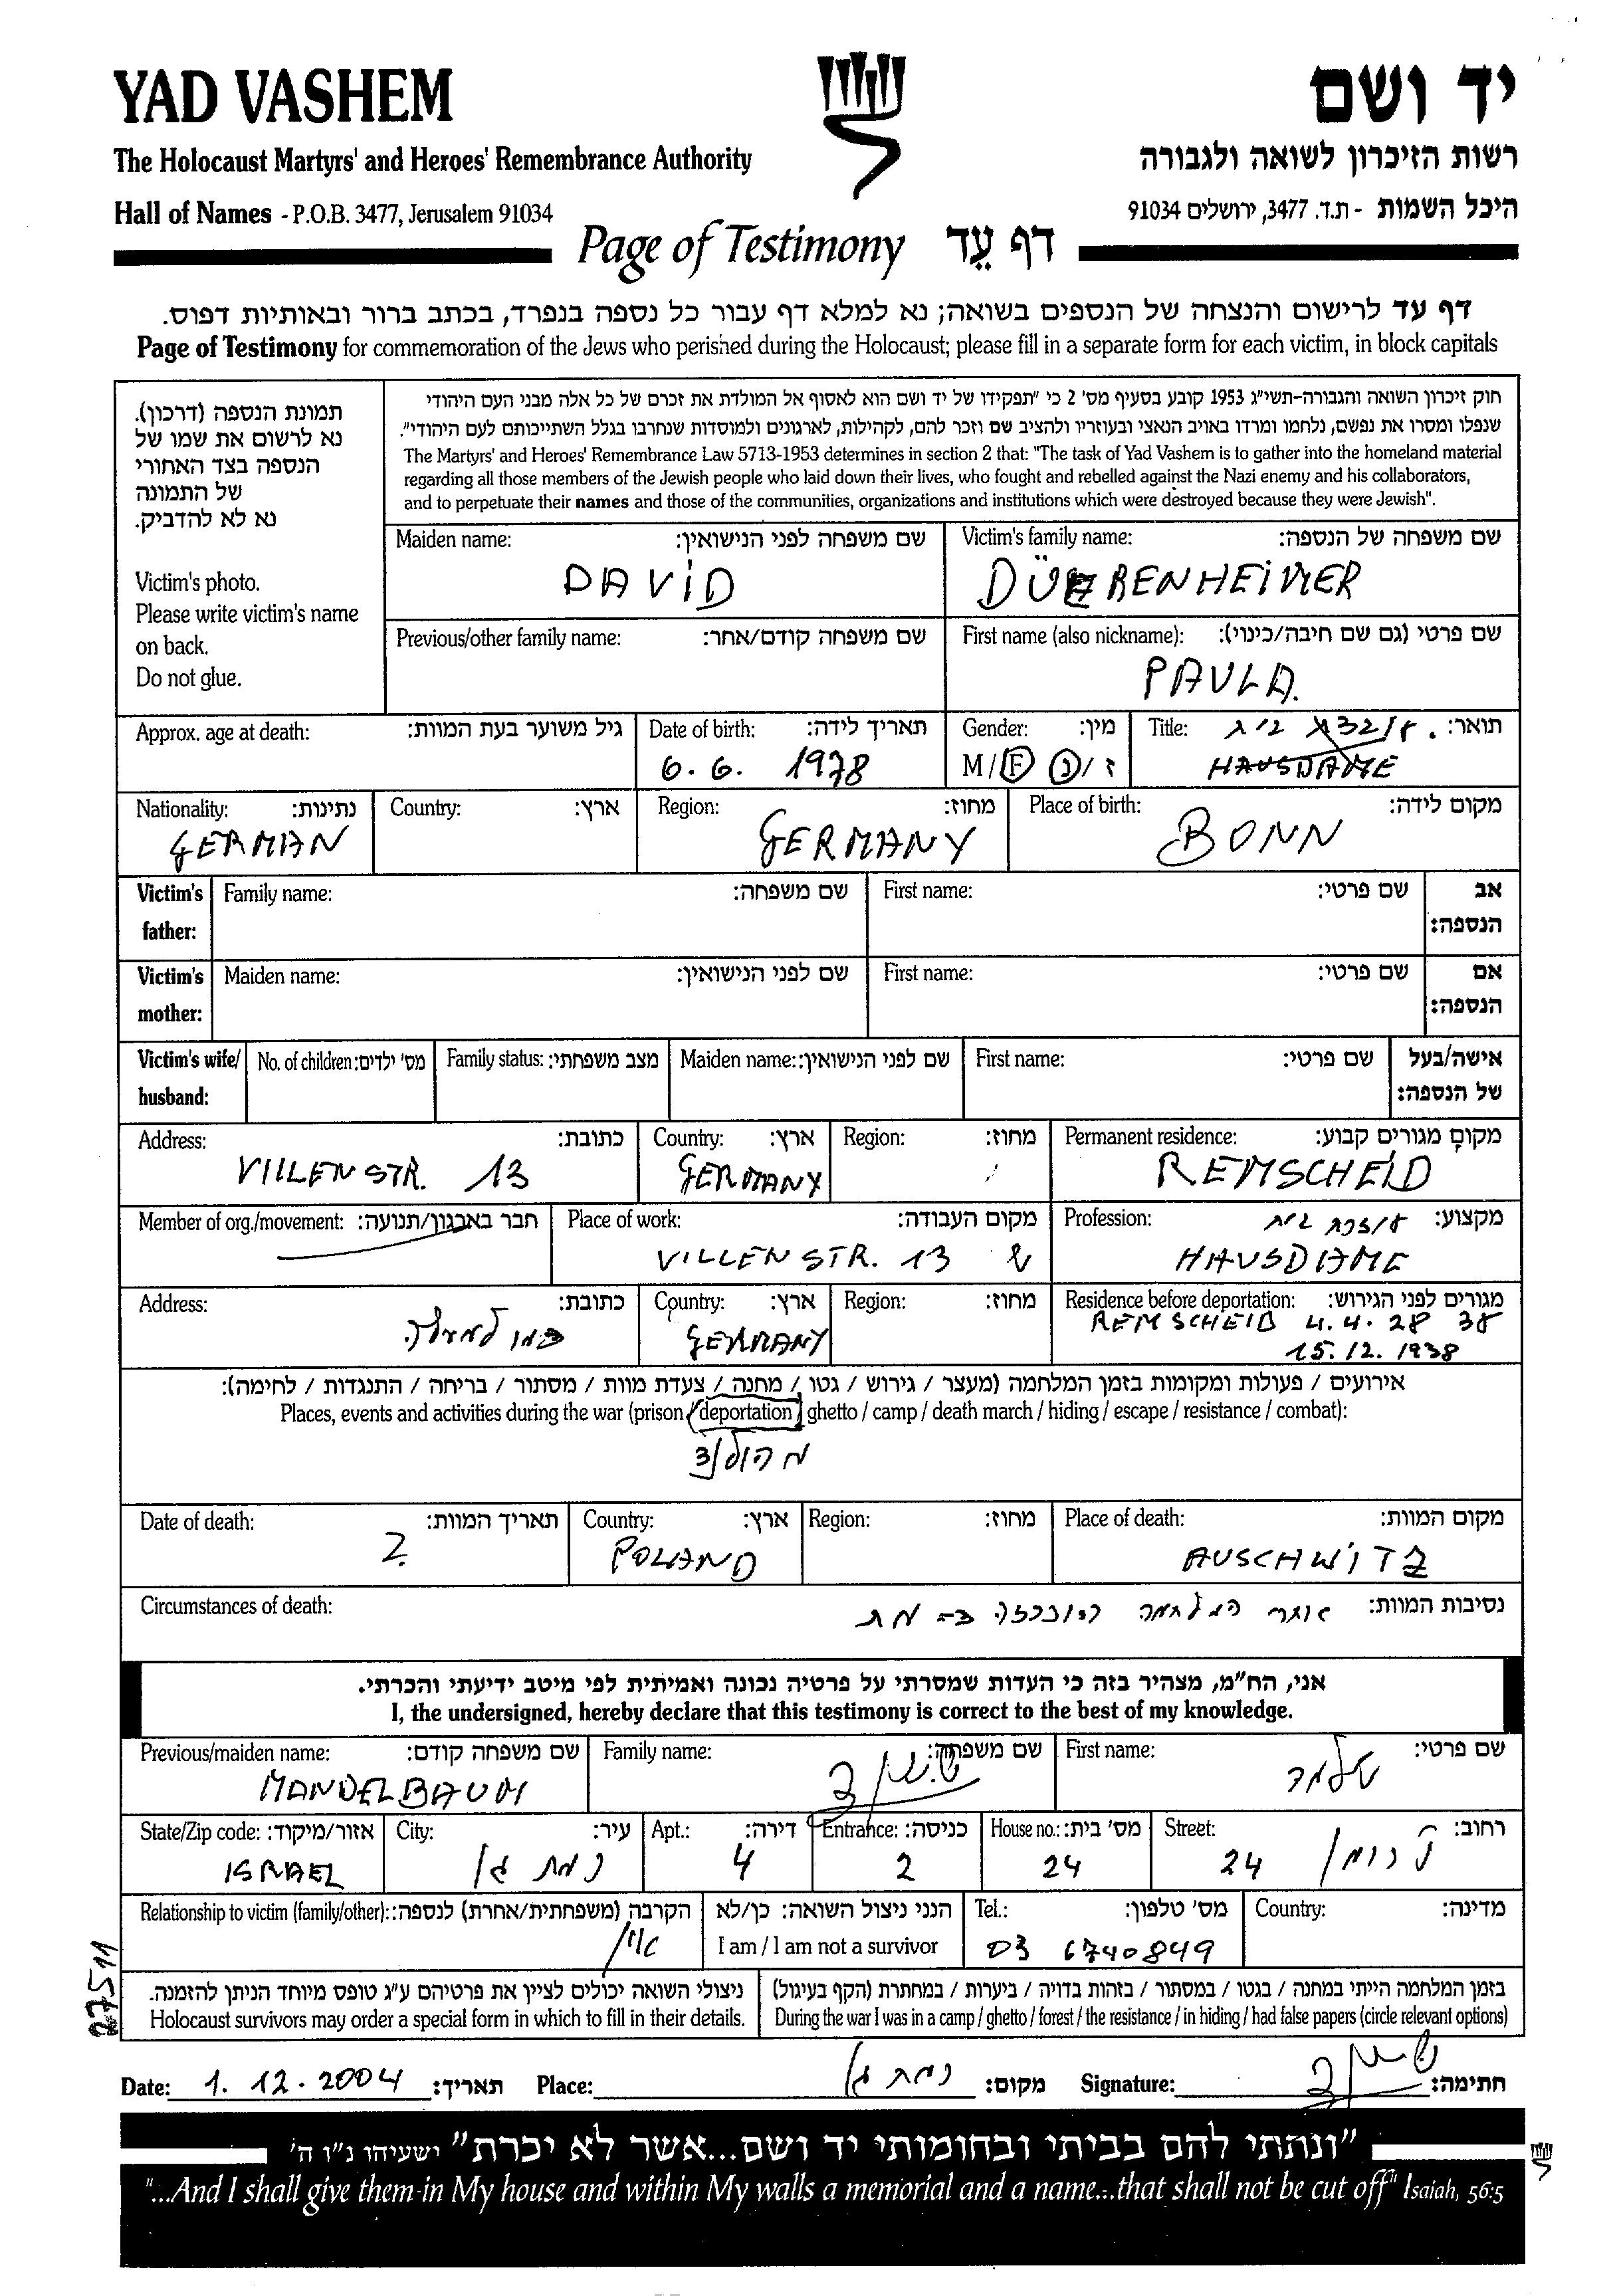 YAD VASHEM
יד ושם
The Holocaust Martyrs' and Heroes' Remembrance Authority
רשות הזיכרון לשואה ולגבורה
Hall of Names - P.O.B. 3477, Jerusalem 91034
היכל השמות - ת.ד. 3477, ירושלים 91034
Page of Testimony דף עֵד
דף עד לרישום והנצחה של הנספים בשואה; נא למלא דף עבור כל נספה בנפרד, בכתב ברור ובאותיות דפוס.
Page of Testimony for commemoration of the Jews who perished during the Holocaust; please fill in a separate form for each victim, in block capitals
תמונת הנספה (דרכון).
נא לרשום את שמו של
הנספה בצד האחורי
של התמונה
נא לא להדביק.
Victim's photo.
Please write victim's name
on back.
Do not glue.
חוק זיכרון השואה והגבורה-תשי"ג 1953 קובע בסעיף מס' 2 כי "תפקידו של יד ושם הוא לאסוף אל המולדת את זכרם של כל אלה מבני העם היהודי
שנפלו ומסרו את נפשם, נלחמו ומרדו באויב הנאצי ובעוזריו ולהציב שם וזכר להם, לקהילות, לארגונים ולמוסדות שנחרבו בגלל השתייכותם לעם היהודי".
The Martyrs' and Heroes' Remembrance Law 5713-1953 determines in section 2 that: "The task of Yad Vashem is to gather into the homeland material
regarding all those members of the Jewish people who laid down their lives, who fought and rebelled against the Nazi enemy and his collaborators,
and to perpetuate their names and those of the communities, organizations and institutions which were destroyed because they were Jewish".
Maiden name: שם משפחה לפני הנישואין:
DAVID
Victim's family name: שם משפחה של הנספה:
DÜERENHEIMER
Previous/other family name: שם משפחה קודם/אחר:
First name (also nickname): שם פרטי (גם שם חיבה/כינוי):
PAULA.
Approx. age at death: גיל משוער בעת המוות:
Date of birth: תאריך לידה:
6. 6. 1878
Gender: מין:
M / F ז / נ
Title: תואר:
HAUSDAME
Nationality: נתינות:
GERMAN
Country: ארץ:
Region: מחוז:
GERMANY
Place of birth: מקום לידה:
BONN
Victim's father: Family name: שם משפחה: First name: שם פרטי: אב הנספה:
Victim's mother: Maiden name: שם לפני הנישואין: First name: שם פרטי: אם הנספה:
Victim's wife/ husband: No. of children: מס' ילדים: Family status: מצב משפחתי: Maiden name: שם לפני הנישואין: First name: שם פרטי: אישה/בעל של הנספה:
Address: כתובת:
VILLENSTR. 13
Country: ארץ:
GERMANY
Region: מחוז:
Permanent residence: מקום מגורים קבוע:
REMSCHEID
Member of org./movement: חבר בארגון/תנועה:
Place of work: מקום העבודה:
VILLENSTR. 13
Profession: מקצוע:
HAUSDAME
Address: כתובת:
כמו למעלה
Country: ארץ:
GERMANY
Region: מחוז:
Residence before deportation: מגורים לפני הגירוש:
REMSCHEID 4.4.28 38
15.12.1938
אירועים / פעולות ומקומות בזמן המלחמה (מעצר / גירוש / גטו / מחנה / צעדת מוות / מסתור / בריחה / התנגדות / לחימה):
Places, events and activities during the war (prison / deportation / ghetto / camp / death march / hiding / escape / resistance / combat):
מהולנד
Date of death: תאריך המוות:
?
Country: ארץ:
POLAND
Region: מחוז:
Place of death: מקום המוות:
AUSCHWITZ
Circumstances of death: נסיבות המוות:
אחרי המלחמה הוכרזה כ- מת
אני, הח"מ, מצהיר בזה כי העדות שמסרתי על פרטיה נכונה ואמיתית לפי מיטב ידיעתי והכרתי.
I, the undersigned, hereby declare that this testimony is correct to the best of my knowledge.
Previous/maiden name: שם משפחה קודם:
MANDELBAUM
Family name: שם משפחה:
First name: שם פרטי:
State/Zip code: אזור/מיקוד:
ISRAEL
City: עיר:
רמת גן
Apt.: דירה:
4
Entrance: כניסה:
2
House no.: מס' בית:
24
Street: רחוב:
24
Relationship to victim (family/other): הקרבה (משפחתית/אחרת) לנספה:
הנני ניצול השואה: כן/לא
I am / I am not a survivor
Tel.: מס' טלפון:
03 6740849
Country: מדינה:
27511
ניצולי השואה יכולים לציין את פרטיהם ע"ג טופס מיוחד הניתן להזמנה.
Holocaust survivors may order a special form in which to fill in their details.
בזמן המלחמה הייתי במחנה / בגטו / במסתור / בזהות בדויה / ביערות / במחתרת (הקף בעיגול)
During the war I was in a camp / ghetto / forest / the resistance / in hiding / had false papers (circle relevant options)
Date: 1. 12. 2004 תאריך: Place: רמת גן מקום: Signature: חתימה:
"ונתתי להם בביתי ובחומותי יד ושם...אשר לא יכרת" ישעיהו נ"ו ה'
"...And I shall give them in My house and within My walls a memorial and a name...that shall not be cut off" Isaiah, 56:5